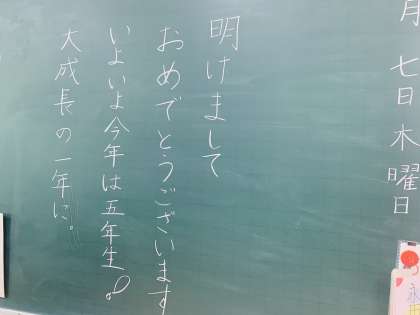 月七日木曜日
明けまして
おめでとうございます
いよいよ今年は五年生!
大成長の一年に。